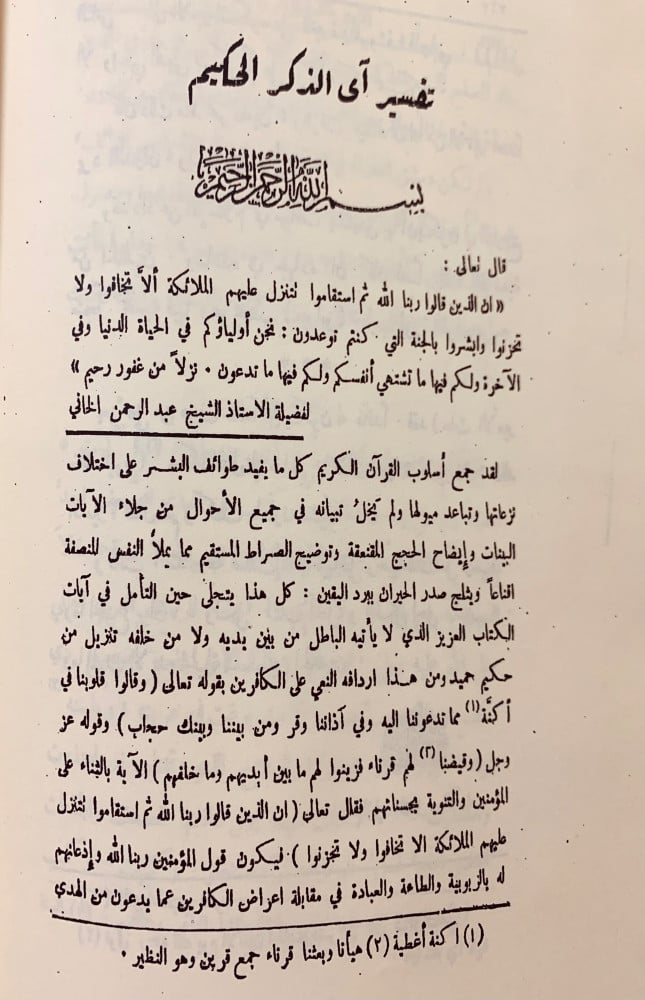 تفسير آى الذكر الحكيم
بسم الله الرحمن الرحيم
قال تعالى :
« ان الذين قالوا ربنا الله ثم استقاموا تتنزل عليهم الملائكة ألاَّ تخافوا ولا
تحزنوا وابشروا بالجنة التي كنتم توعدون : نحن أولياؤكم في الحياة الدنيا وفي
الآخرة ولكم فيها ما تشتهي أنفسكم ولكم فيها ما تدعون ٠ نزلاً من غفور رحيم »
لفضيلة الاستاذ الشيخ عبد الرحمن الخاني
لقد جمع أسلوب القرآن الكريم كل ما يفيد طوائف البشر على اختلاف
نزعاتها وتباعد ميولها ولم يَخلُ تبيانه في جميع الأحوال من جلاء الآيات
البينات وإيضاح الحجج المقنعة وتوضيح الصراط المستقيم مما يملأ النفس للنصفة
اقناعاً ويثلج صدر الحيران ببرد اليقين : كل هذا يتجلى حين التأمل في آيات
الكتاب العزيز الذي لا يأتيه الباطل من بين يديه ولا من خلفه تنزيل من
حكيم حميد ومن هذا اردافه النعي على الكافرين بقوله تعالى ( وقالوا قلوبنا في
أكنَّة (١) مما تدعوننا اليه وفي آذاننا وقر ومن بيننا وبينك حجاب ) وقوله عز
وجل ( وقيضنا (٢) لهم قرناء فزينوا لهم ما بين أيديهم وما خلفهم ) الآية بالثناء على
المؤمنين والتنوية بحسناتهم فقال تعالى ( ان الذين قالوا ربنا الله ثم استقاموا تتنزل
عليهم الملائكة الا تخافوا ولا تحزنوا ) فيكون قول المؤمنين ربنا الله وإذعانهم
له بالربوبية والطاعة والعبادة في مقابلة اعراض الكافرين عما يدعون من الهدي
(١) اكنة أغطية (٢) هيأنا وبعثنا قرناء جمع قرين وهو النظير ٠